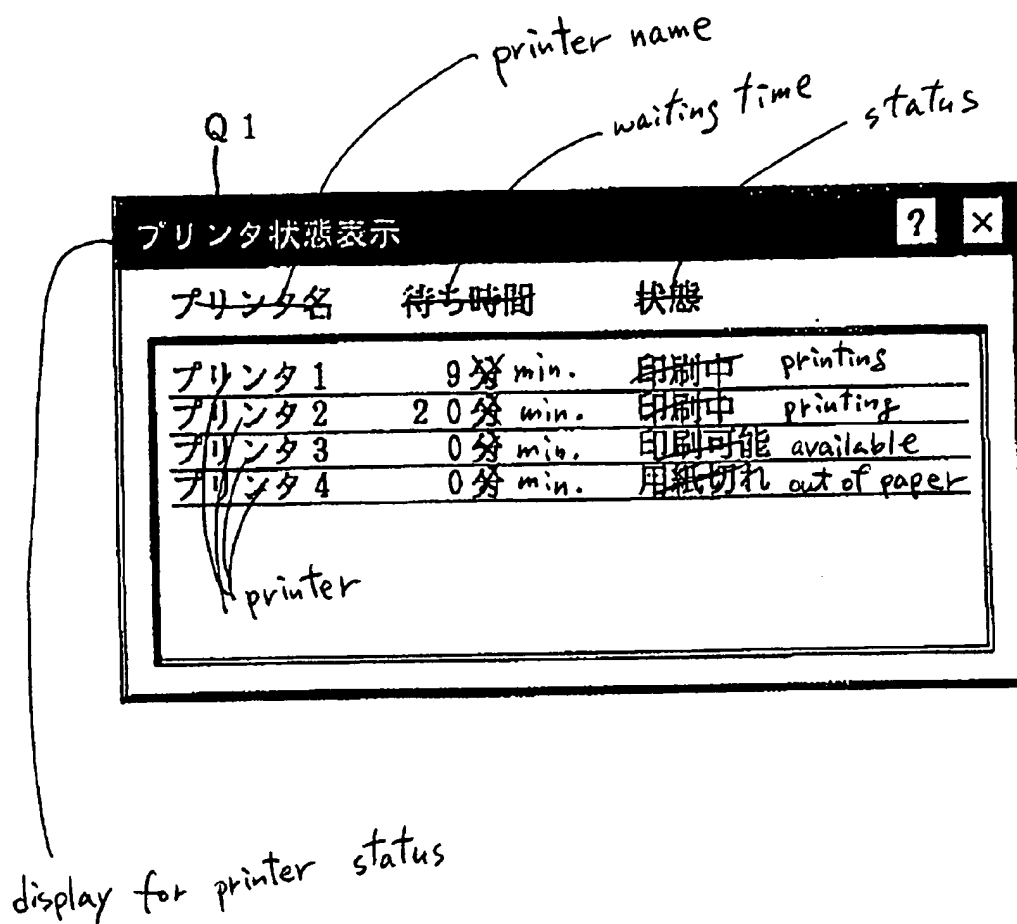 printer name
waiting time
status
Q 1
プリンタ状態表示 ? ×
プリンタ名 待ち時間 状態
プリンタ1 9分 min. 印刷中 printing
プリンタ2 20分 min. 印刷中 printing
プリンタ3 0分 min. 印刷可能 available
プリンタ4 0分 min. 用紙切れ out of paper
printer
display for printer status